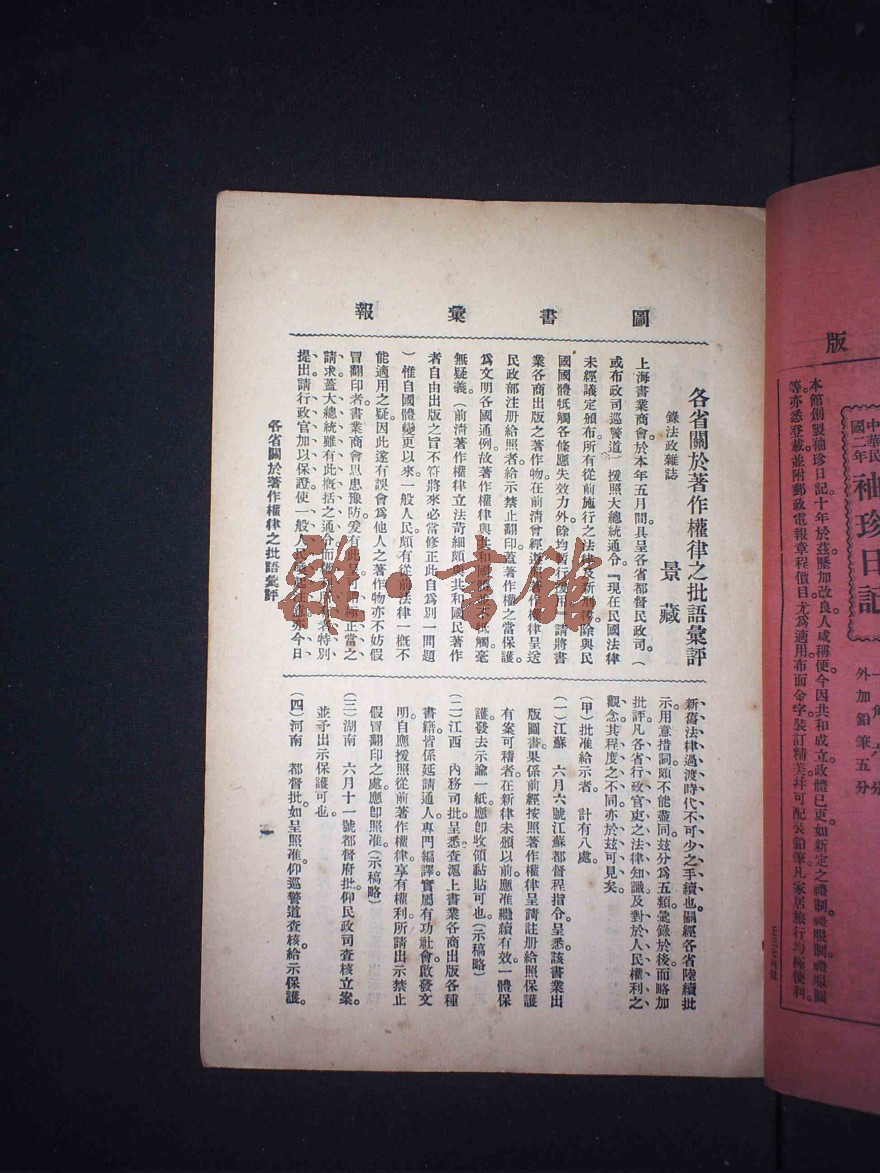 圖書彙報
各省關於著作權律之批語彙評
錄法政雜誌
景藏
上海書業商會於本年五月間具呈各省都督民政司（
或布政司巡警道）援照大總統通令『現在民國法律
未經議定頒布所有從前施行之法律及新刑律除與民
國國體牴觸各條應失效力外餘均暫行援用』請將書
業各商出版之著作物在前清曾經遵照著作權律呈送
民政部注册給照者給示禁止翻印蓋著作權之當保護
爲文明各國通例故著作權律與共和國體絕不牴觸毫
無疑義。（前清著作權律立法苛細頗與共和國民著作
者自由出版之旨不符將來必當修正此自爲別一問題
）惟自國體變更以來一般人民頗有從前法律一概不
能適用之疑因此遂有誤會爲他人之著作物亦不妨假
冒翻印者書業商會思患豫防爰有此呈
正當之
請求蓋大總統雖有此概括之通令而
特別
提出請行政官加以保證使一般人民
亦今日
各省關於著作權律之批語彙評
新舊法律過渡時代不可少之手續也嗣經各省陸續批
示用意措詞頗不能盡同茲分爲五類彙錄於後而略加
批評凡各省行政官吏之法律知識及對於人民權利之
觀念其程度之不同亦於玆可見矣。
（甲）批准給示者。 計有八處。
（一）江蘇 六月六號江蘇都督程指令。呈悉該書業出
版圖書果係前經按照著作權律呈請註册給照保護
有案可稽者在新律未頒以前應准繼續有效一體保
護發去示諭一紙應卽收領黏貼可也。（示稿略）
（二）江西 內務司批呈悉查滬上書業各商出版各種
書籍皆係延請通人專門編譯實屬有功社會啟發文
明自應援照從前著作權律享有權利所請出示禁止
假冒翻印之處應卽照准。（示稿略）
（三）湖南 六月十一號都督府批仰民政司查核立案。
並予出示保護可也。
（四）河南 都督批如呈照准仰巡警道查核給示保護。
一
雜·書館
版
中華民
國二年
袖珍日記
一角六分
外加鉛筆五分
本館創製袖珍日記十年於茲歷加改良人咸稱便今因共和成立政體已更如新定之禮制禮服制禮服圖
等亦悉登載並附郵政電報章程價目尤爲適用布面金字裝訂精美并可配裝鉛筆凡家居旅行均極便利。